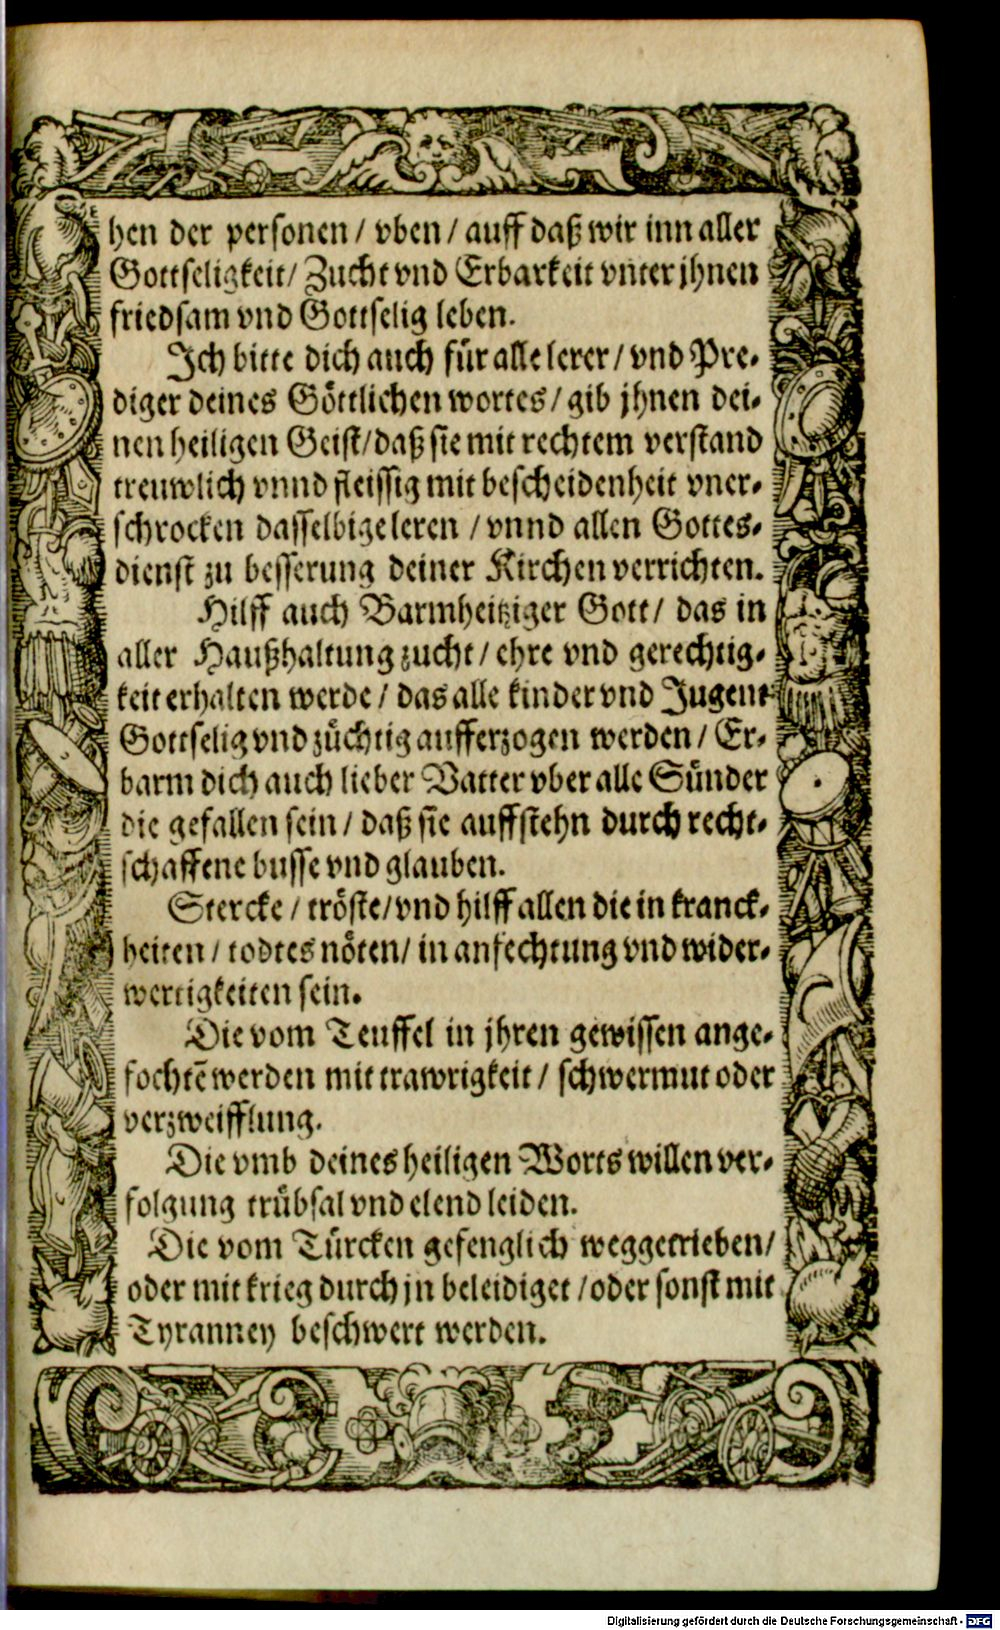 hen der personen / vben / auff daß wir inn aller
Gottseligkeit / Zucht vnd Erbarkeit vnter jhnen
friedsam vnd Gottselig leben.
Ich bitte dich auch für alle lerer / vnd Pre-
diger deines Göttlichen wortes / gib jhnen dei-
nen heiligen Geist / daß sie mit rechtem verstand
treuwlich vnnd fleissig mit bescheidenheit vner-
schrocken dasselbige leren / vnnd allen Gottes-
dienst zu besserung deiner Kirchen verrichten.
Hilff auch Barmheitziger Gott / das in
aller Haußhaltung zucht / ehre vnd gerechtig-
keit erhalten werde / das alle kinder vnd Jugent
Gottselig vnd züchtig aufferzogen werden / Er-
barm dich auch lieber Vatter vber alle Sünder
die gefallen sein / daß sie auffstehn durch recht-
schaffene busse vnd glauben.
Stercke / tröste / vnd hilff allen die in kranck-
heiten / todtes nöten / in anfechtung vnd wider-
wertigkeiten sein.
Die vom Teuffel in jhren gewissen ange-
fochtẽ werden mit trawrigkeit / schwermut oder
verzweifflung.
Die vmb deines heiligen Worts willen ver-
folgung trübsal vnd elend leiden.
Die vom Türcken gefenglich weggetrieben /
oder mit krieg durch jn beleidiget / oder sonst mit
Tyranney beschwert werden.
Digitalisierung gefördert durch die Deutsche Forschungsgemeinschaft - DFG